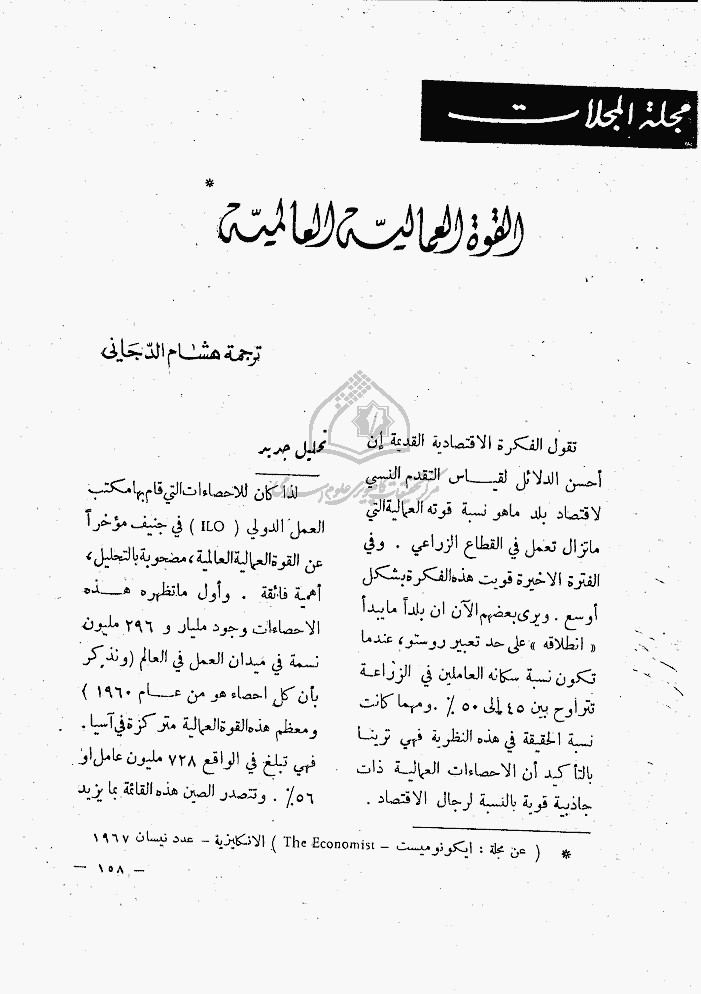 مجلة المجلات
القوة العمالية العالمية *
ترجمة هشام الدجاني
تقول الفكرة الاقتصادية القديمة إن
أحسن الدلائل لقياس التقدم النسبي
لاقتصاد بلد ماهو نسبة قوته العمالية التي
ماتزال تعمل في القطاع الزراعي . وفي
الفترة الاخيرة قويت هذه الفكرة بشكل
أوسع . ويرى بعضهم الآن ان بلداً ما يبدأ
« انطلاقه » على حد تعبير روستو، عندما
تكون نسبة سكانه العاملين في الزراعة
تتراوح بين ٤٥ إلى ٥٠ ٪ . ومهما كانت
نسبة الحقيقة في هذه النظرية فهي ترينا
بالتأكيد أن الاحصاءات العمالية ذات
جاذبية قوية بالنسبة لرجال الاقتصاد .
تحليل جديد
لذا كان للاحصاءات التي قام بها مكتب
العمل الدولي ( ILO ) في جنيف مؤخراً
عن القوة العمالية العالمية، مصحوبة بالتحليل،
أهمية فائقة . وأول ماتظهره هذه
الاحصاءات وجود مليار و ٢٩٦ مليون
نسمة في ميدان العمل في العالم (ونذكر
بأن كل احصاء هو من عام ١٩٦٠ )
ومعظم هذه القوة العمالية متركزة في آسيا .
فهي تبلغ في الواقع ٧٢٨ مليون عامل او
٥٦٪ . وتتصدر الصين هذه القائمة بما يزيد
* ( عن مجلة : ايكونوميست – The Economist ) الانكليزية – عدد نيسان ١٩٦٧
– ١٥٨ –